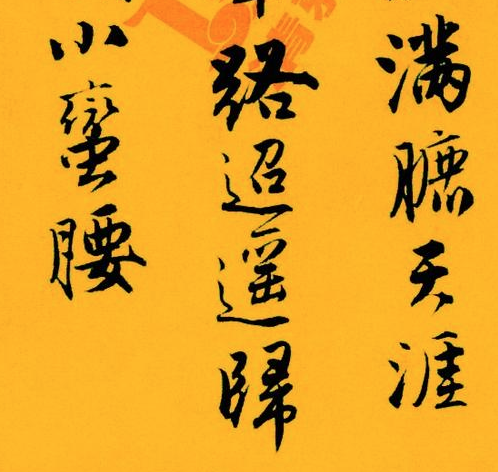 满臕天涯
路迢遥歸
小蠻腰